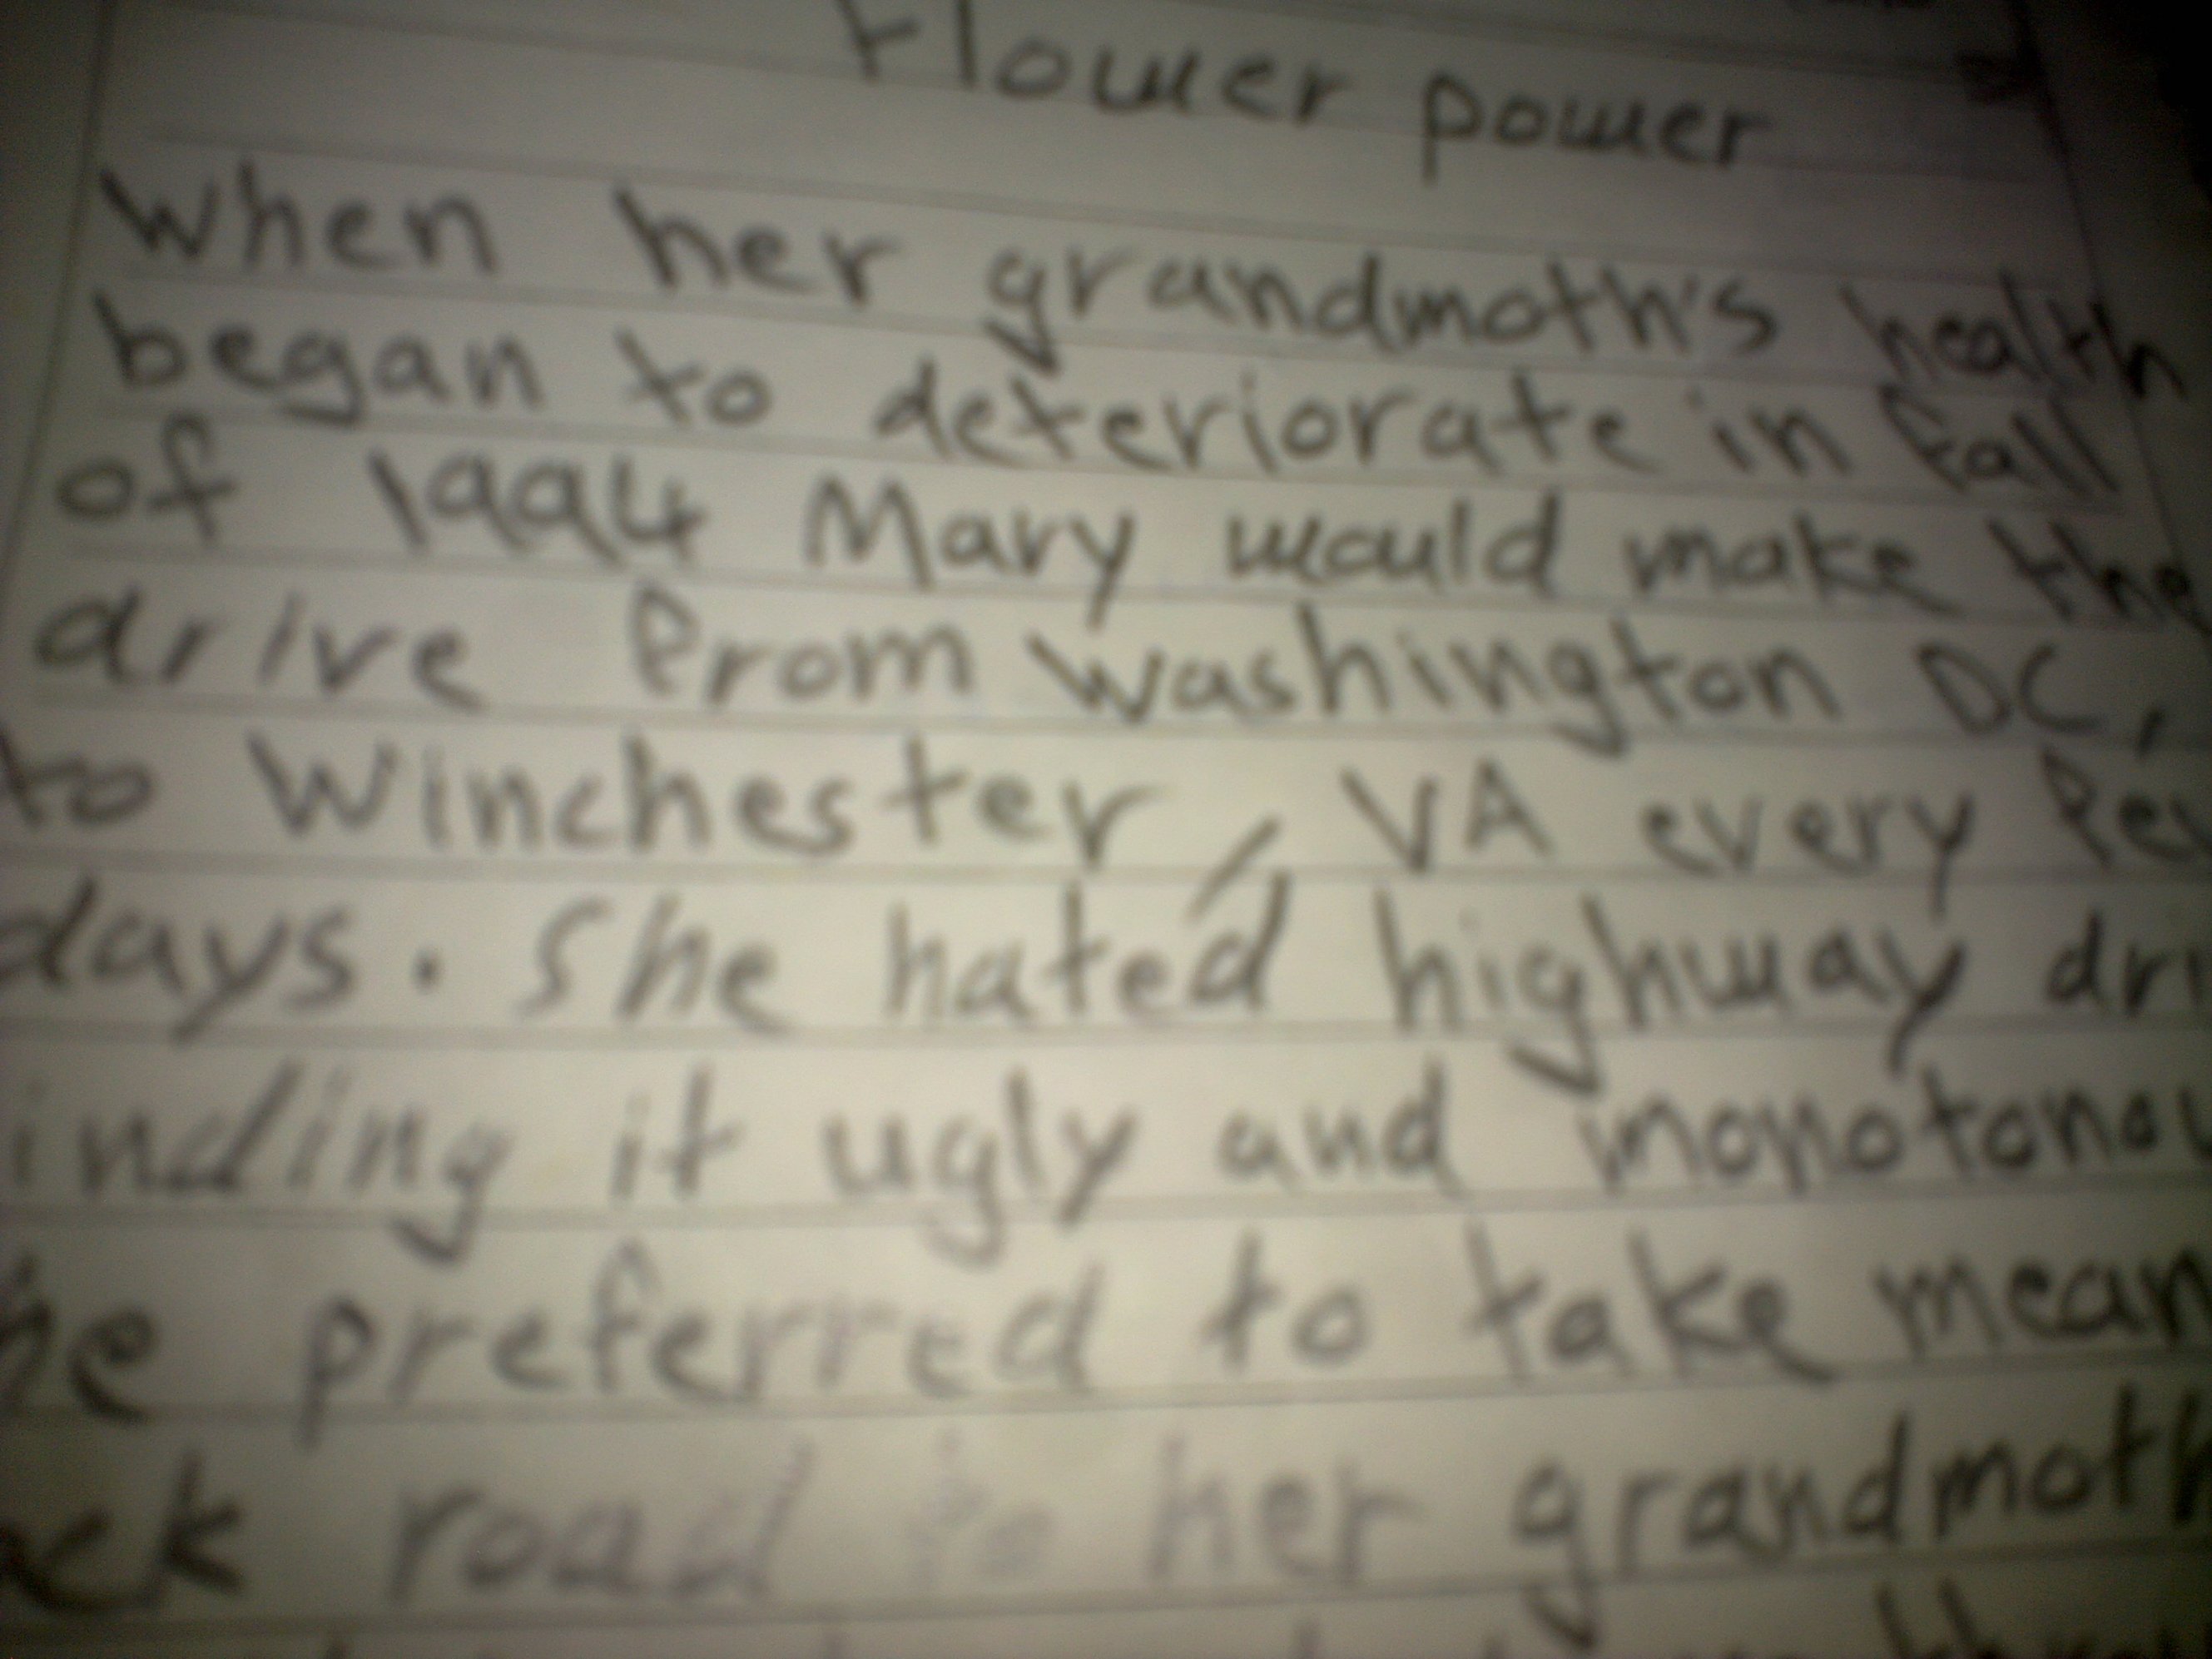 Flower power
When her grandmoth's health
began to deteriorate in fall
of 1994 Mary would make the
drive from Washington DC,
to Winchester, VA every few
days. She hated highway dri
inding it ugly and monotonou
he preferred to take mean
ck road to her grandmoth